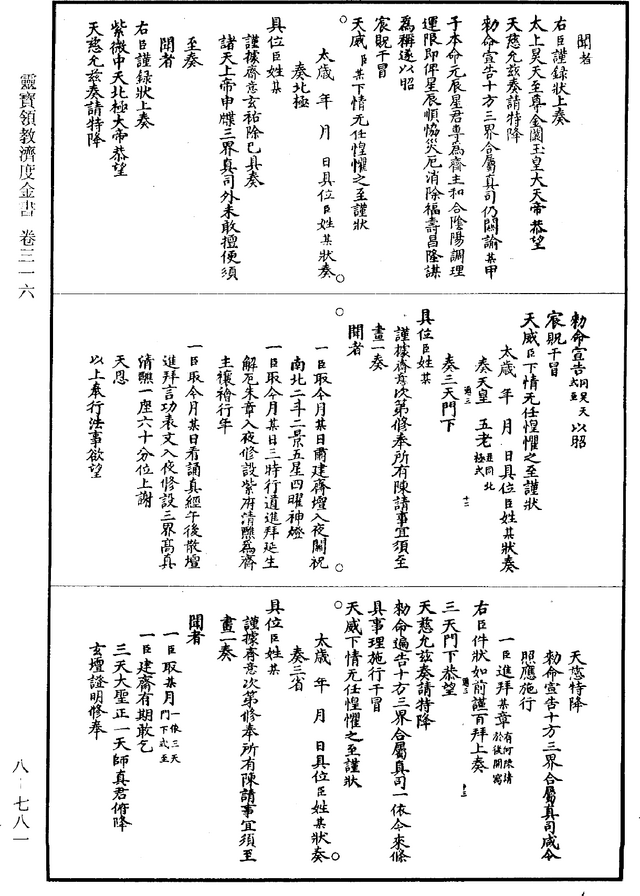 聞者
右臣謹錄狀上奏
太上昊天至尊金闕玉皇大天帝恭望
天慈允兹奏請特降
勑命宣告十方三界合屬真司仍關諭某甲
于本命元辰星君專為齋主和合陰陽調理
運限即俾星辰順協災厄消除福壽昌隆謀
為稱遂以昭
宸貺干冒
天威臣某下情无任惶懼之至謹狀
太歲 年 月 日具位臣姓某狀奏
奏北極
具位臣姓某
謹據齋意玄祐除已具奏
諸天上帝申牒三界真司外未敢擅便須
至奏
聞者
右臣謹錄狀上奏
紫微中天北極大帝恭望
天慈允兹奏請特降
勑命宣告同昊天式至以昭
宸貺干冒
天威臣下情无任惶懼之至謹狀
太歲 年 月 日具位臣姓某狀奏
奏天皇 五老並同北極式
奏三天門下
具位臣姓某
謹據齋意次第修奉所有陳請事宜須至
畫一奏
聞者
一臣取今月某日肅建齋壇入夜關祝
南北二斗二景五星四曜神燈
一臣取今月某日三時行道進拜延生
解厄朱章入夜修設紫府清醮為齋
主禳禬行年
一臣取今月某日看誦真經午後散壇
進拜言功表文入夜修設三界高真
清醮一座六十分位上謝
天恩
以上奉行法事欲望
天慈特降
勑命宣告十方三界合屬真司咸令
照應施行
一臣進拜某章有何陳請於後開寫
右臣件狀如前謹百拜上奏
三天門下恭望
天慈允兹奏請特降
勑命遍告十方三界合屬真司一依令來條
具事理施行干冒
天威下情无任惶懼之至謹狀
太歲 年 月 日具位臣姓某狀奏
奏三省
具位臣姓某
謹據齋意次第修奉所有陳請事宜須至
畫一奏
聞者
一臣取某月一依三天門下式至
一臣建齋有期敢乞
三天大聖正一天師真君俯降
玄壇證明修奉
靈寶領教濟度金書 卷三一六
八-七八一